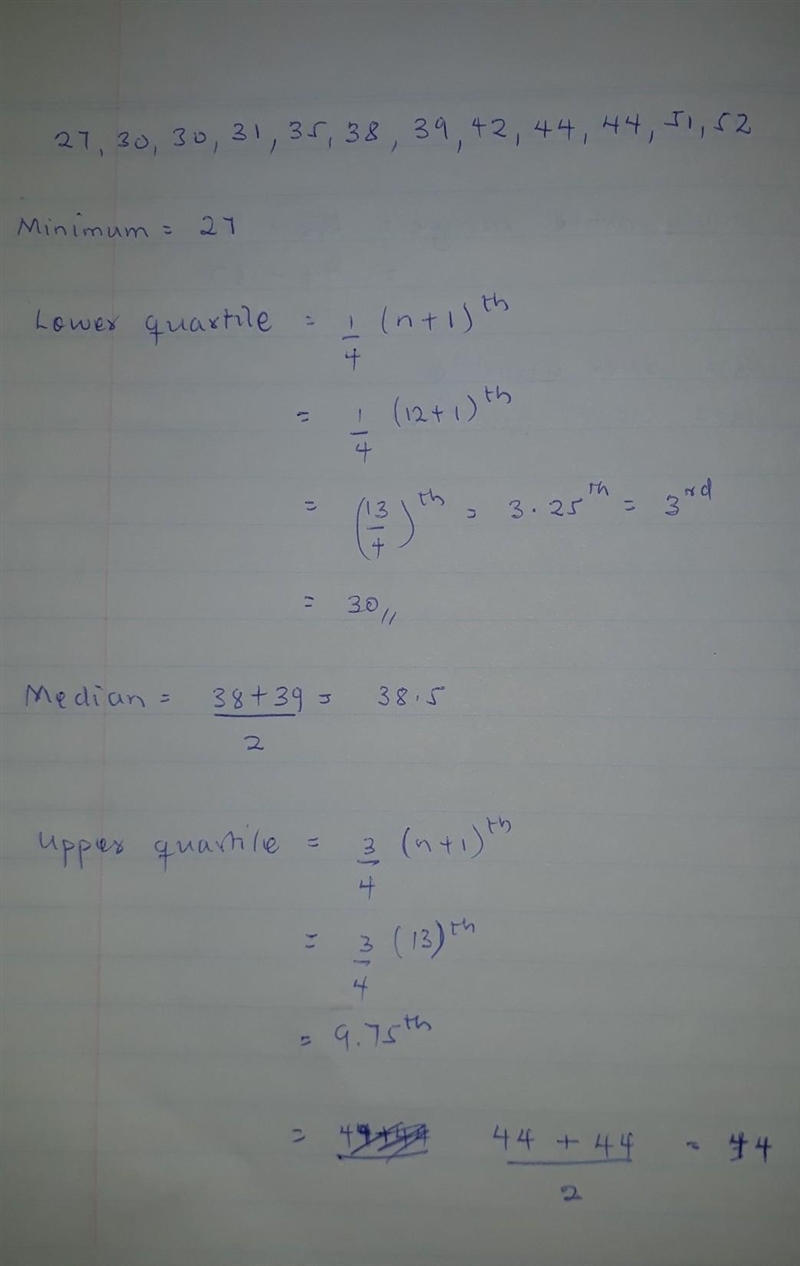 27, 30, 30, 31, 35, 38, 39, 42, 44, 44, 51, 52
Minimum = 27
Lower quartile = 1/4 (n+1)th
= 1/4 (12+1)th
= (13/4)th = 3.25th = 3rd
= 30//
Median = 38+39/2 = 38.5
Upper quartile = 3/4 (n+1)th
= 3/4 (13)th
= 9.75th
= 44 + 44/2 = 44